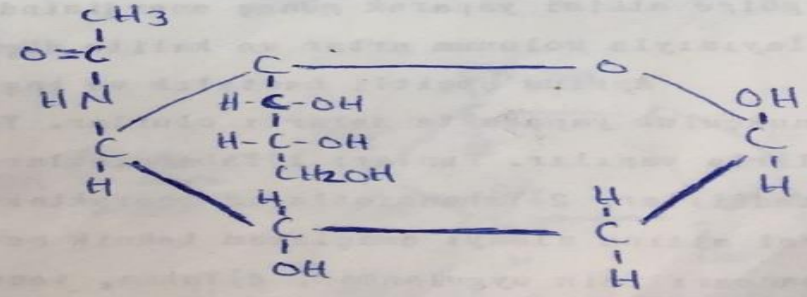 CH3
O=C
HN
C
H
C
H-C-OH
H-C-OH
CH2OH
O
OH
C
H
H
C
OH
H
C
H